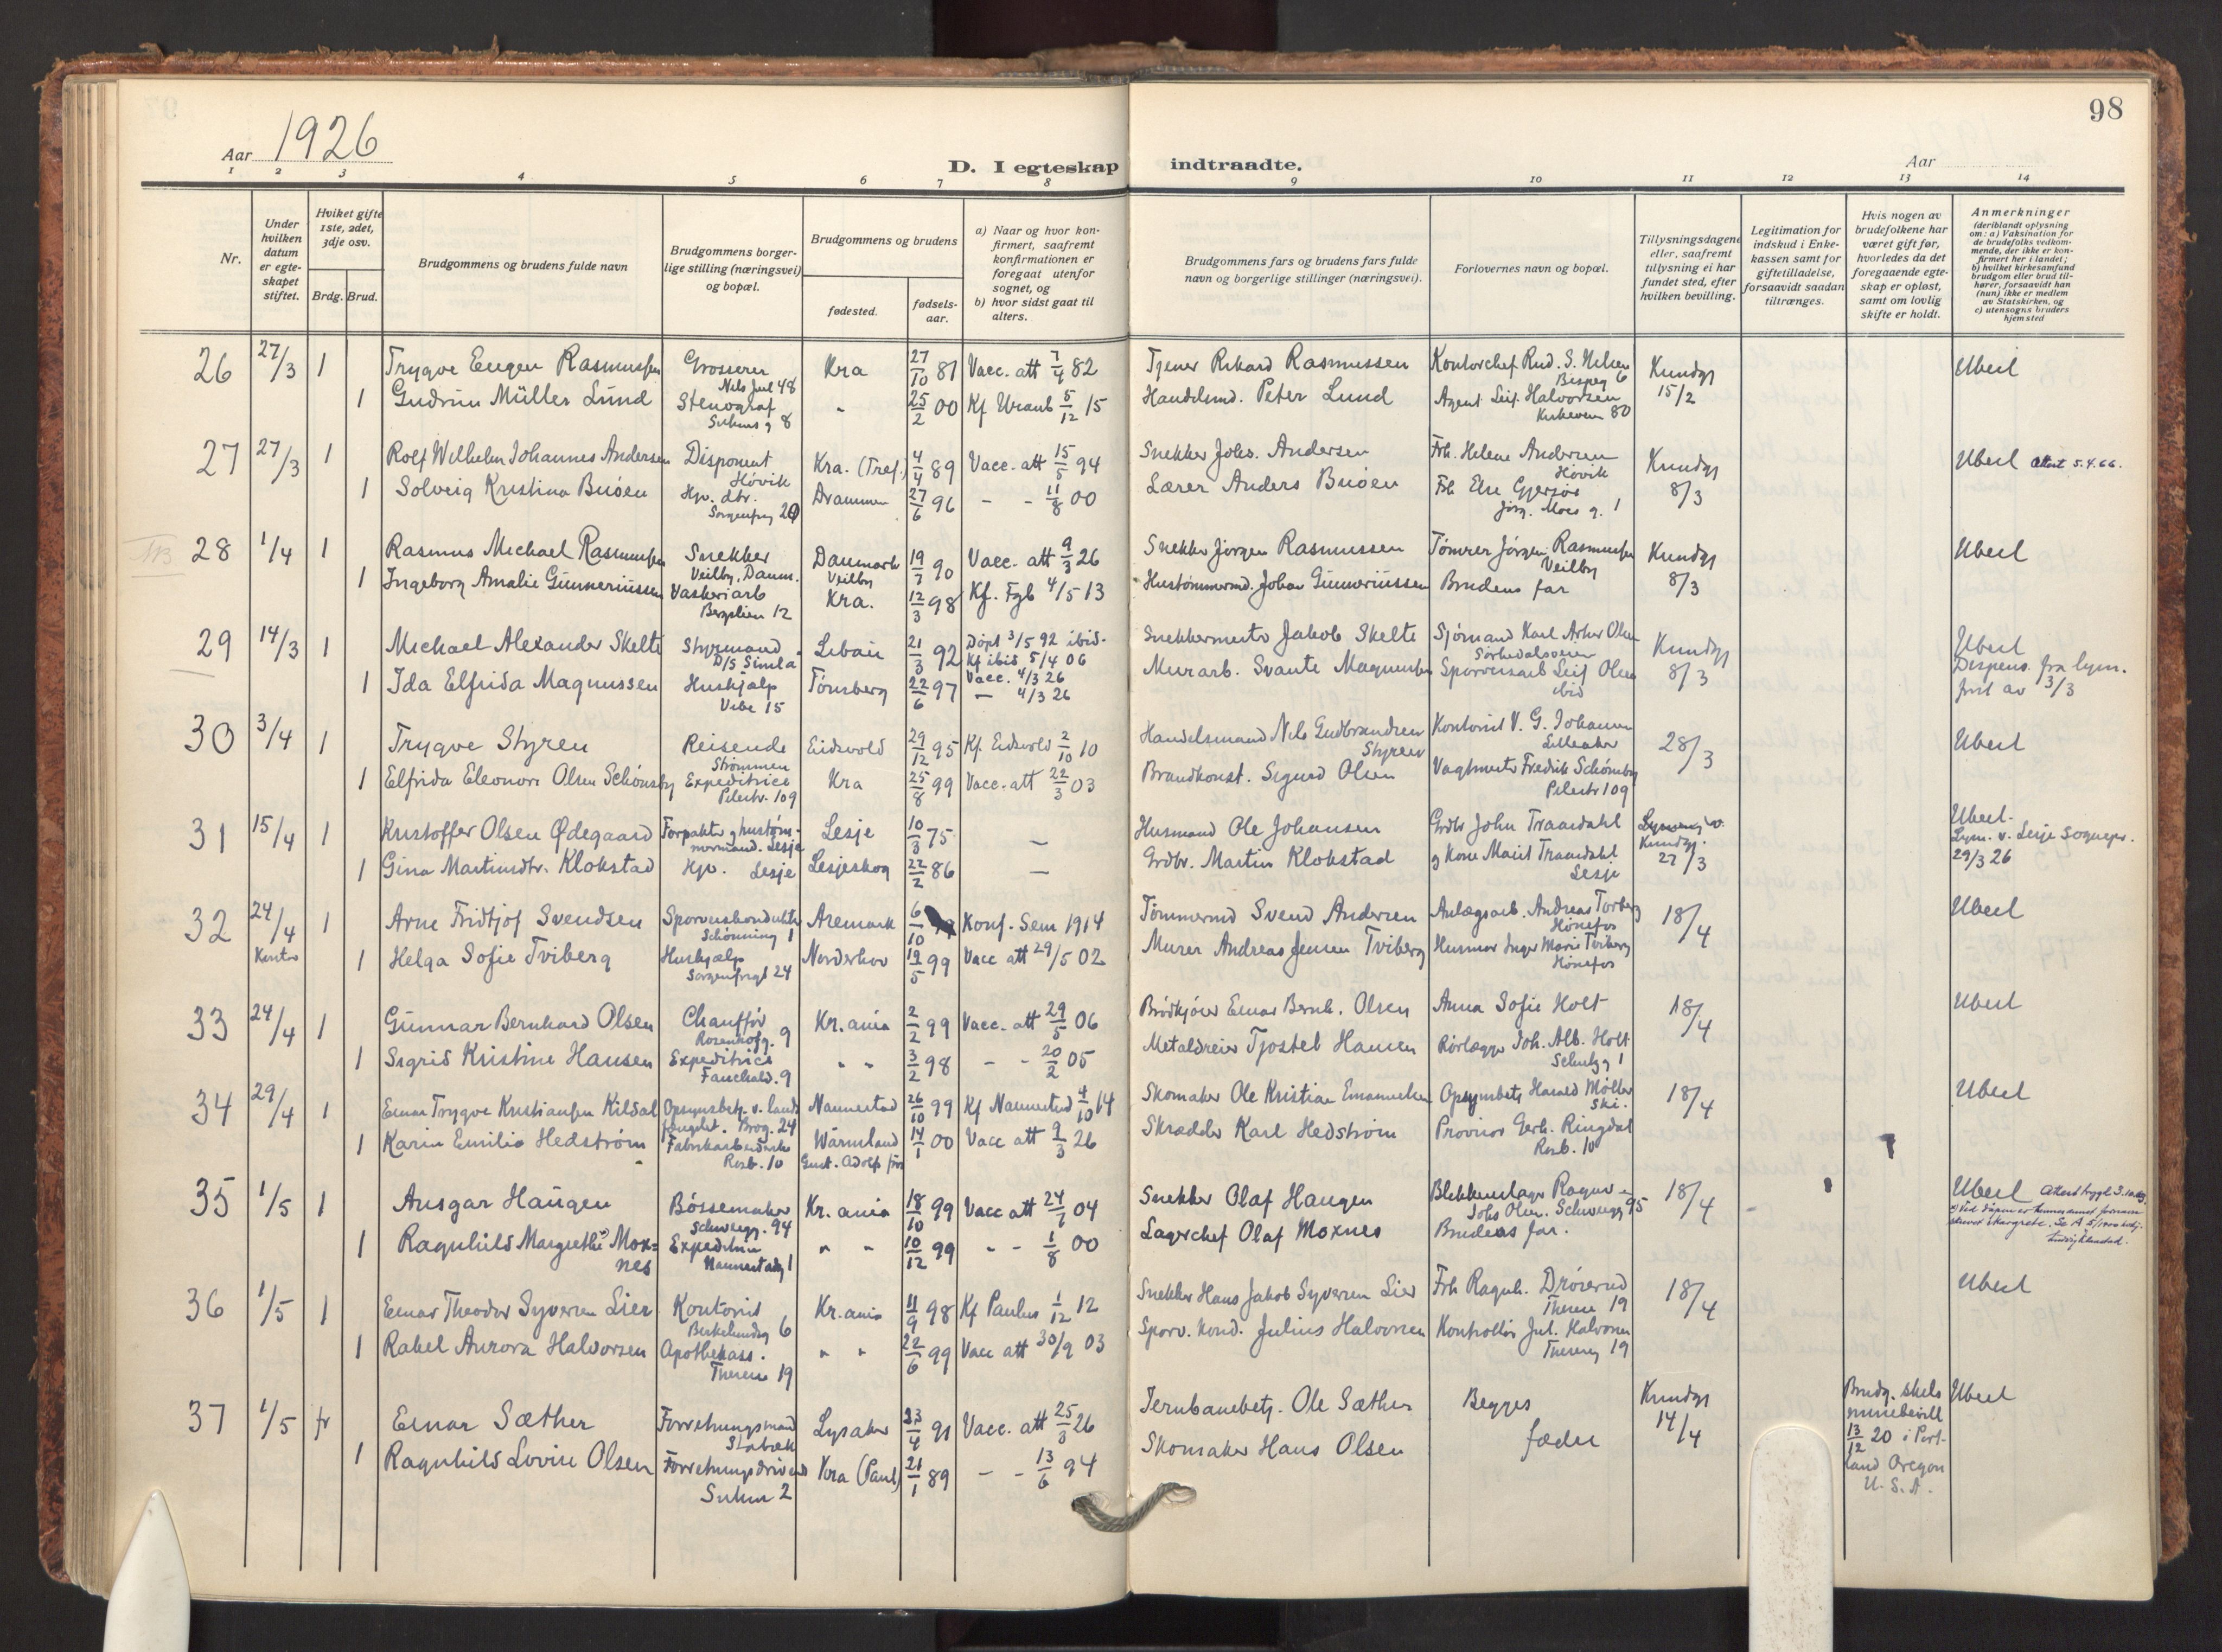 98
Aar 1926
D. I egteskap indtraadte.
Aar
1 2 3 4 5 6 7 8 9 10 11 12 13 14
Nr.
Under hvilken datum er egteskapet stiftet.
Hviket gifte 1ste, 2det, 3dje osv.
Brdg. Brud.
Brudgommens og brudens fulde navn
Brudgommens borgerlige stilling (næringsvei) og bopæl.
Brudgommens og brudens
fødested.
fødselsaar.
a) Naar og hvor konfirmert, saafremt konfirmationen er foregaat utenfor sognet, og
b) hvor sidst gaat til alters.
Brudgommens fars og brudens fars fulde navn og borgerlige stillinger (næringsvei).
Forlovernes navn og bopæl.
Tillysningsdagene eller, saafremt tillysning ei har fundet sted, efter hvilken bevilling.
Legitimation for indskud i Enkekassen samt for giftetilladelse, forsaavidt saadan tiltrænges.
Hvis nogen av brudefolkene har været gift før, hvorledes da det foregaaende egteskap er opløst, samt om lovlig skifte er holdt.
Anmerkninger (deriblandt oplysning om: a) Vaksination for de brudefolks vedkommende, der ikke er konfirmert her i landet; b) hvilket kirkesamfund brudgom eller brud tilhører, forsaavidt han (hun) ikke er medlem av Statskirken, og c) utensogns bruders hjemsted
26 27/3 1 Trygve Eugen Rasmussen Grosserer Nils Juel 48 Kra 27/10 81 Vacc. att 7/4 82 Tjener Rikard Rasmussen Kontorchef Rud. S. Nilsen Bispeg 6 Kundgj 15/2 Ubeil
1 Gudrun Müller Lund Stenograf Suhms g 8 " 25/2 00 Kf Uranb 5/12 15 Handelsmd. Peter Lund Agent Leif Halvorsen Kirkeveien 80
27 27/3 1 Rolf Wilhelm Johannes Andersen Disponent Høvik Kra. (Tref.) 4/4 89 Vacc. att 15/5 94 Snekker Johs. Andersen Frk. Helene Andersen Høvik Kundgj 8/3 Ubeil Attest 5.4.66.
1 Solveig Kristina Buøen Hjv. dtr. Sorgenfrig 20 Drammen 27/6 96 - - 11/8 00 Lærer Anders Buøen Frk Else Gjersøe Jørg. Moes g. 1
28 1/4 1 Rasmus Michael Rasmussen Snekker Veilby, Danm. Danmark Veilby 19/3 90 Vacc. att 9/3 26 Snekker Jørgen Rasmussen Tømrer Jørgen Rasmussen Veilby Kundgj 8/3 Ubeil
1 Ingeborg Amalie Gunneriussen Vaskeriarb Bergslien 12 Kra. 12/3 98 Kf. Fgb 4/5 13 Hustømmermd. Johan Gunneriussen Brudens far
29 14/3 1 Michael Alexander Skelte Styrmand D/S Simla Libau 21/3 92 Døpt 3/5 92 ibid. Kf ibid 5/4 06 Vacc. 4/3 26 Snekkermester Jakob Skelte Sjømand Karl Artur Olsen Sørkedalsveien Kundgj 8/3 Ubeil Dispens. fra lysn. frist av 3/3
1 Ida Elfrida Magnussen Hushjælp Vibe 15 Tønsberg 22/6 97 — 4/3 26 Murarb. Svante Magnussen Sporveisarb Leif Olsen ibid
30 3/4 1 Trygve Styren Reisende Strømmen Eidsvold 29/12 95 Kf Eidsvold 2/10 10 Handelsmand Nils Gudbrandsen Styren Kontorist V. G. Johansen Lilleaker 28/3 Ubeil
1 Elfrida Eleonore Olsen Schønsby Expeditrice Pilestr. 109 Kra 25/8 99 Vacc. att 22/3 03 Brandkonst. Sigurd Olsen Vagtmester Fredrik Schønsby Pilestr 109
31 15/4 1 Kristoffer Olsen Ødegaard Forpakter g hustømmermand. Lesje Lesje 10/3 75 — Husmand Ole Johansen Grdbr John Traasdahl Lysning v. Kundgj. 27/3 Ubeil. Lysn. v. Lesje Sognepr. 29/3 26
1 Gina Martinsdtr. Klokstad Hjv. Lesje Lesjeskog 22/2 86 — Grdbr. Martin Klokstad g Kone Marit Traasdahl Lesje
32 24/4 Kontor 1 Arne Fridtjof Svendsen Sporveiskonduktør Schønning 1 Aremark 6/10 Konf. Sem 1914 Tømmermd Svend Andersen Anlægsarb. Andreas Tviberg Hønefos 18/4 Ubeil
1 Helga Sofie Tviberg Hushjælp Sorgenfrigt 24 Norderhov 19/5 99 Vacc att 29/5 02 Murer Andreas Jensen Tviberg Husmor Inger Marie Tviberg Hønefos
33 24/4 1 Gunnar Bernhard Olsen Chauffør Rosenhofg. 9 Kr.ania 2/2 99 Vacc. att 29/5 06 Brødkjører Einar Bernh. Olsen Anna Sofie Holt 18/4 Ubeil
1 Sigrid Kristine Hansen Expeditrice Fauchald. 9 " " 3/2 98 - - 20/2 05 Metaldreier Tjostel Hansen Rørlægger Joh. Alb. Holt Schultzg 1
34 29/4 1 Einar Trygve Kristiansen Kildal Opsynsbetj. v. landsfengslet. Brog. 24 Nannestad 26/10 99 Kf Nannestad 4/10 14 Skomaker Ole Kristian Emanuelsen Opsynsbetj Harald Møller Ski. 18/4 Ubeil
1 Karin Emilia Hedstrøm Fabrikarbeiderske Rosb. 10 Wärmland Gust. Adolf förs 14/1 00 Vacc att 9/3 26 Skrædder Karl Hedstrøm Provisor Gerh. Ringdal Rosb. 10
35 1/5 1 Ansgar Haugen Bøssemaker Schweigg. 94 Kr. ania 18/10 99 Vacc att 24/7 04 Snekker Olaf Haugen Blikkenslager Ragnar Johs Olsen. Schweigg 95 18/4 Ubeil
1 Ragnhild Margrethe Moxnes Expeditrice Nannestadg 1 " " 10/12 99 - - 1/8 00 Lagerchef Olaf Moxnes Brudens far.
36 1/5 1 Einar Theodor Syversen Lier Kontorist Birkelundsg 6 Kr.ania 11/9 98 Kf Paulus 1/12 12 Snekker Hans Jakob Syversen Lier Frk Ragnh. Drøserud Therese 19 18/4 Ubeil
1 Rakel Aurora Halvorsen Apothekass. Therese 19 " " 22/6 99 Vacc att 30/9 03 Sporv. Kond. Julius Halvorsen Kontrollør Jul. Halvorsen Thereseg 19
37 1/5 fr Einar Sæther Forretningsmand Stabæk Lysaker 23/4 91 Vacc. att 25/3 26 Jernbanebetj. Ole Sæther Begges Kundgj 14/4 Brudg. skilsmissebevill 13/12 20 i Portland Oregon U.S.A. Ubeil
1 Ragnhild Lovise Olsen Forretningsdrivende Suhm 2 Kra (Paul) 21/1 89 - - 13/6 94 Skomaker Hans Olsen fædre